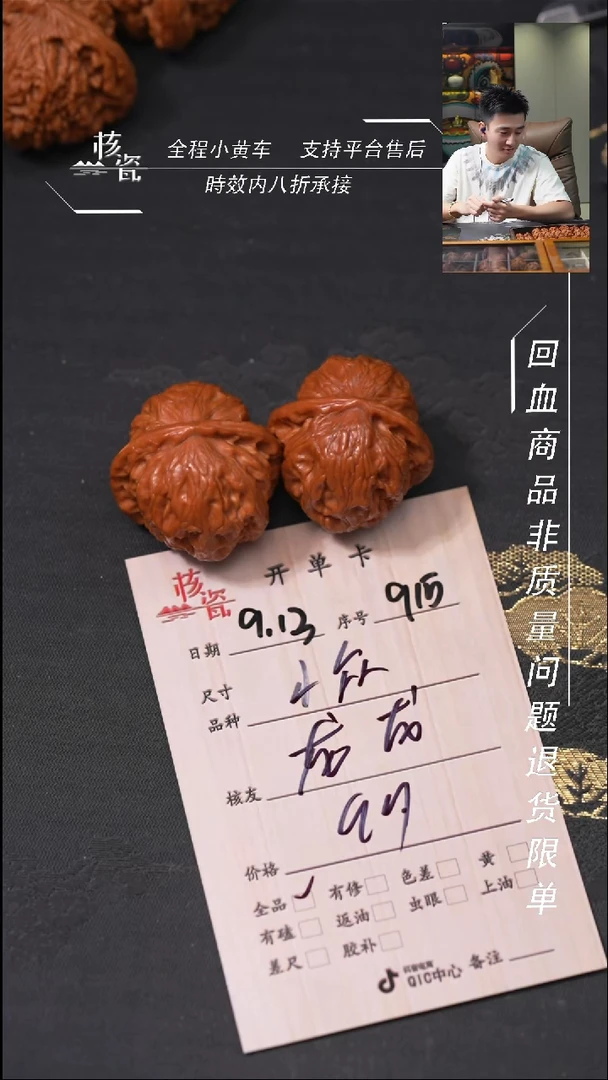 核瓷
全程小黄车 支持平台售后
時效内八折承接
回血商品非质量问题退货限单
核瓷
开单卡
日期 9.13 序号 915
尺寸
品种
核友
价格
全品 ✓ 有修 色差 黄
有磕 返油 虫眼 上油
差尺 胶补
抖音电商
QIC中心 备注